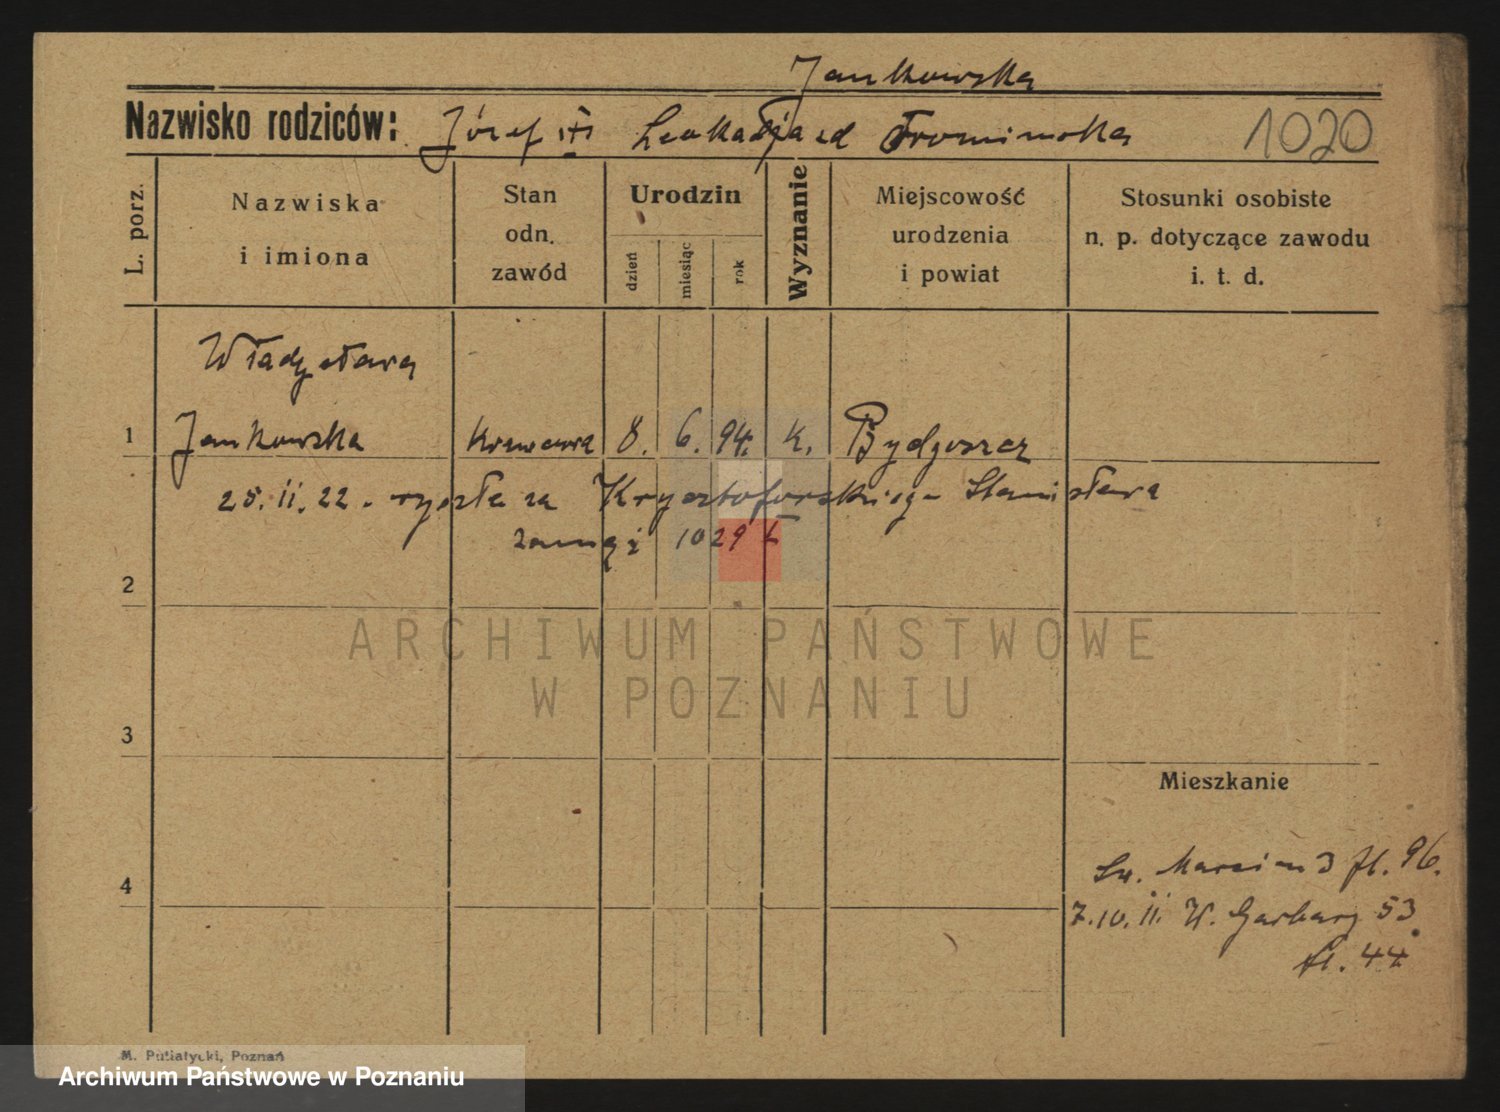 Jankowska
Nazwisko rodziców: Józef Leokadja 1020
L. porz.
Nazwiska
i imiona
Stan
odn.
zawód
Urodzin
dzień
miesiąc
rok
Wyznanie
Miejscowość
urodzenia
i powiat
Stosunki osobiste
n. p. dotyczące zawodu
i. t. d.
Władysława
1 Jankowska Krawcowa 8. 6. 94. k. Bydgoszcz
25.11.22. wyszła za Krysztoforskiego Stanisława
zamąż 1029
2
ARCHIWUM PAŃSTWOWE
W POZNANIU
3
Mieszkanie
Św. Marcin 3 fl. 96.
4
7.10.11. W. Garbary 53
fl. 44
M. Putiatycki, Poznań
Archiwum Państwowe w Poznaniu